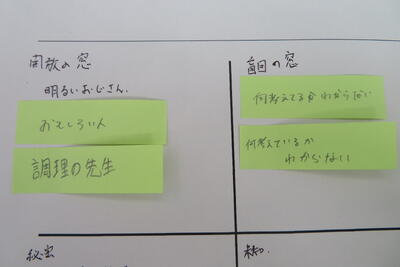 開放の窓
明るいおじさん.
おもしろい人
調理の先生
盲目の窓
何考えてるかわからない
何考えているか
わからない
秘密
未知.